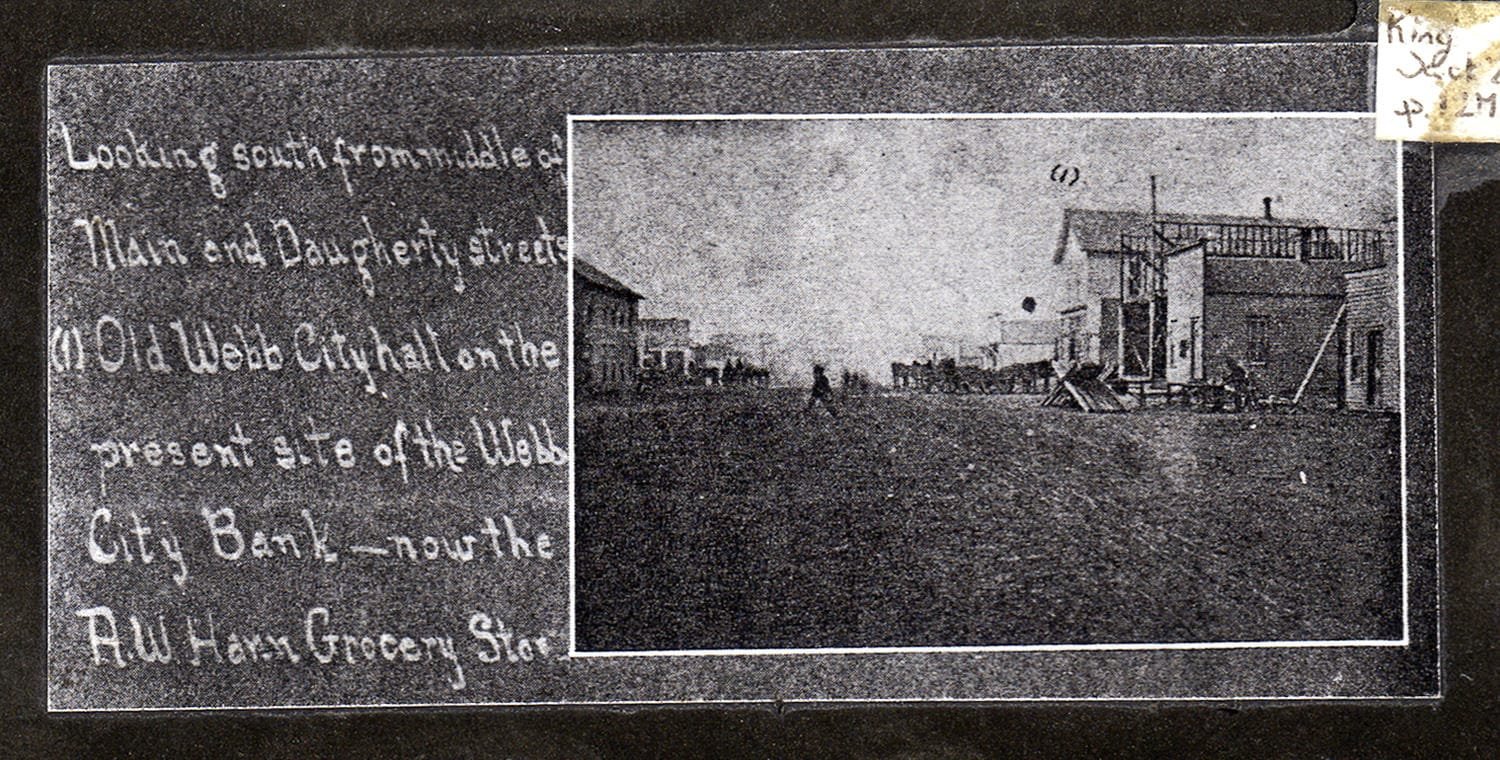 Looking south from middle of
Main and Daugherty streets
(1) Old Webb City hall on the
present site of the Webb
City Bank — now the
A.W Horn Grocery Stor
(1)
King
Jack
p.